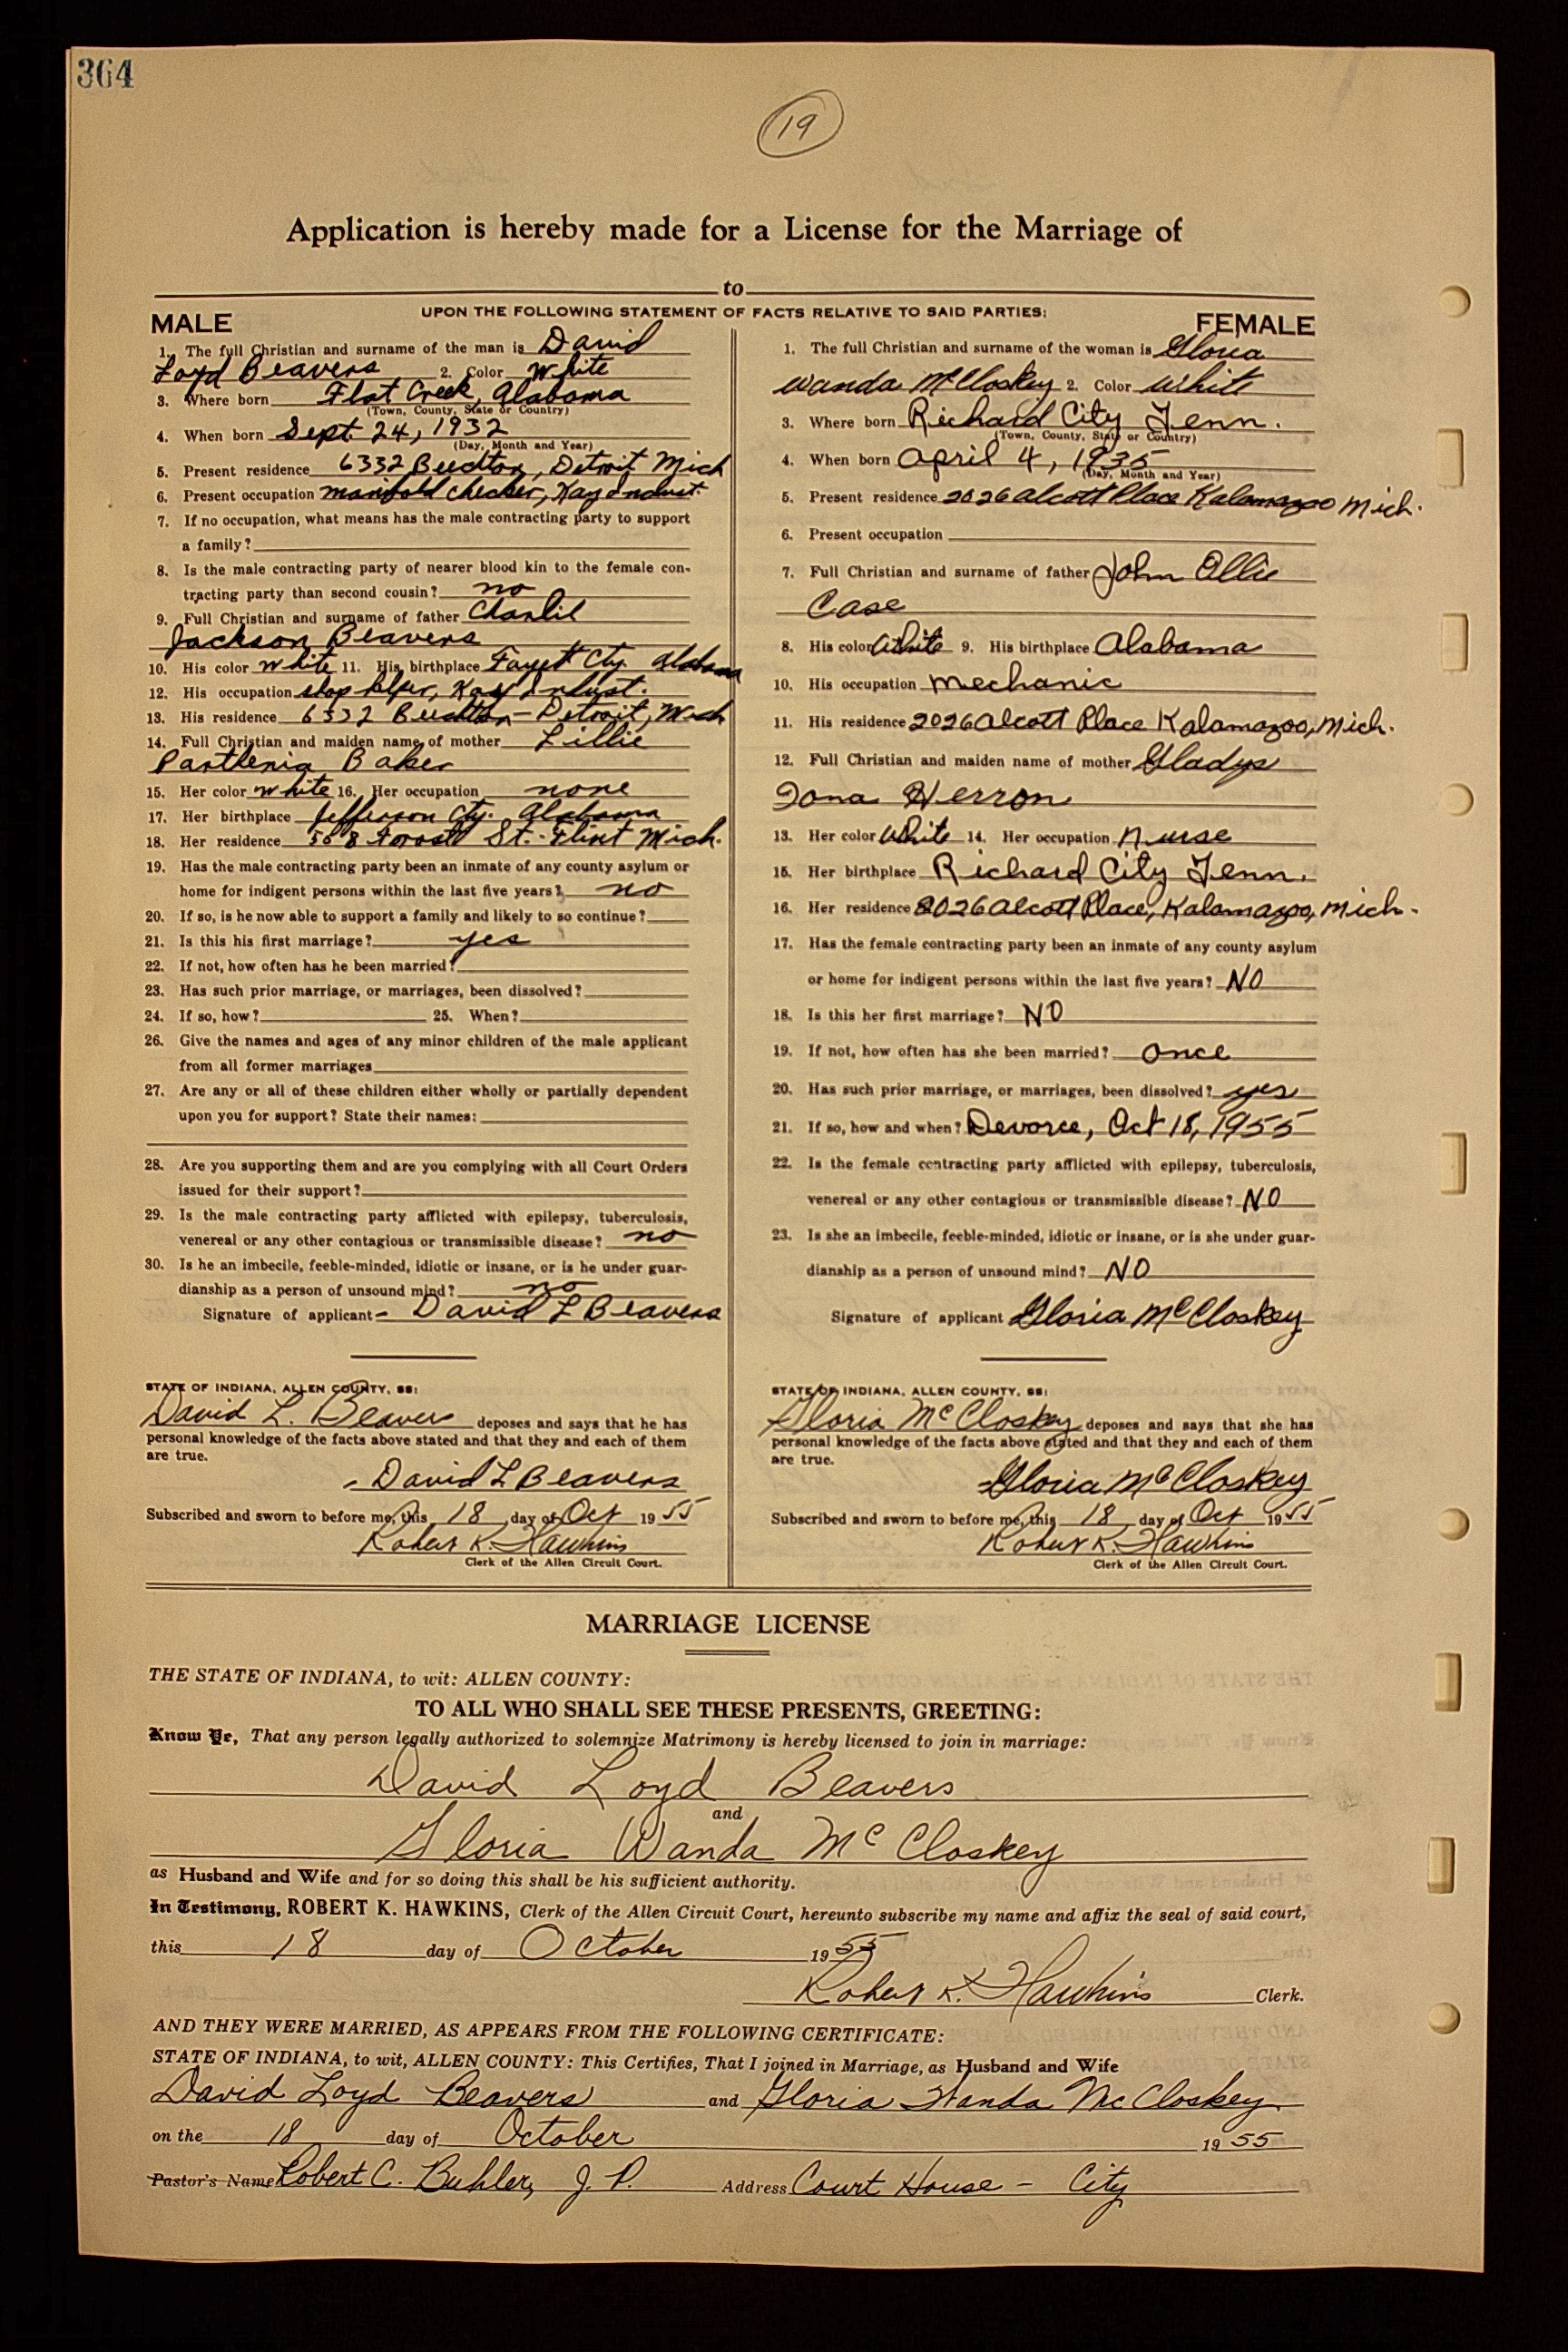 364
19
Application is hereby made for a License for the Marriage of
to
UPON THE FOLLOWING STATEMENT OF FACTS RELATIVE TO SAID PARTIES:
MALE
1. The full Christian and surname of the man is David
Loyd Beavers 2. Color White
3. Where born Flat Creek, Alabama
(Town, County, State or Country)
4. When born Sept. 24, 1932
(Day, Month and Year)
5. Present residence 6332 Detroit Mich
6. Present occupation manifold checker, Kay Indust.
7. If no occupation, what means has the male contracting party to support
a family?
8. Is the male contracting party of nearer blood kin to the female con-
tracting party than second cousin? no
9. Full Christian and surname of father Charlie
Jackson Beavers
10. His color white 11. His birthplace Fayett Cty. Alabama
12. His occupation shop helper, Kay Indust.
13. His residence 6332 - Detroit, Mich
14. Full Christian and maiden name of mother Lillie
Parthenia Baker
15. Her color white 16. Her occupation none
17. Her birthplace Jefferson Cty. Alabama
18. Her residence St. - Flint Mich.
19. Has the male contracting party been an inmate of any county asylum or
home for indigent persons within the last five years? no
20. If so, is he now able to support a family and likely to so continue?
21. Is this his first marriage? yes
22. If not, how often has he been married?
23. Has such prior marriage, or marriages, been dissolved?
24. If so, how? 25. When?
26. Give the names and ages of any minor children of the male applicant
from all former marriages
27. Are any or all of these children either wholly or partially dependent
upon you for support? State their names:
28. Are you supporting them and are you complying with all Court Orders
issued for their support?
29. Is the male contracting party afflicted with epilepsy, tuberculosis,
venereal or any other contagious or transmissible disease? no
30. Is he an imbecile, feeble-minded, idiotic or insane, or is he under guar-
dianship as a person of unsound mind? no
Signature of applicant - David L Beavers
STATE OF INDIANA, ALLEN COUNTY, SS:
David L. Beavers deposes and says that he has
personal knowledge of the facts above stated and that they and each of them
are true.
- David L Beavers
Subscribed and sworn to before me, this 18 day of Oct 1955
Robert K. Hawkins
Clerk of the Allen Circuit Court.
FEMALE
1. The full Christian and surname of the woman is Gloria
Wanda McCloskey 2. Color White
3. Where born Richard City Tenn.
(Town, County, State or Country)
4. When born April 4, 1935
(Day, Month and Year)
5. Present residence 2026 Alcott Place Kalamazoo Mich.
6. Present occupation
7. Full Christian and surname of father John Ollie
Case
8. His color White 9. His birthplace Alabama
10. His occupation Mechanic
11. His residence 2026 Alcott Place Kalamazoo, Mich.
12. Full Christian and maiden name of mother Gladys
Iona Herron
13. Her color White 14. Her occupation Nurse
15. Her birthplace Richard City Tenn.
16. Her residence 2026 Alcott Place, Kalamazoo, Mich.
17. Has the female contracting party been an inmate of any county asylum
or home for indigent persons within the last five years? NO
18. Is this her first marriage? NO
19. If not, how often has she been married? once
20. Has such prior marriage, or marriages, been dissolved? yes
21. If so, how and when? Devorce, Oct 18, 1955
22. Is the female contracting party afflicted with epilepsy, tuberculosis,
venereal or any other contagious or transmissible disease? NO
23. Is she an imbecile, feeble-minded, idiotic or insane, or is she under guar-
dianship as a person of unsound mind? NO
Signature of applicant Gloria McCloskey
STATE OF INDIANA, ALLEN COUNTY, SS:
Gloria McCloskey deposes and says that she has
personal knowledge of the facts above stated and that they and each of them
are true.
Gloria McCloskey
Subscribed and sworn to before me, this 18 day of Oct 1955
Robert K. Hawkins
Clerk of the Allen Circuit Court.
MARRIAGE LICENSE
THE STATE OF INDIANA, to wit: ALLEN COUNTY:
TO ALL WHO SHALL SEE THESE PRESENTS, GREETING:
Know Ye, That any person legally authorized to solemnize Matrimony is hereby licensed to join in marriage:
David Loyd Beavers
and
Gloria Wanda McCloskey
as Husband and Wife and for so doing this shall be his sufficient authority.
In Testimony, ROBERT K. HAWKINS, Clerk of the Allen Circuit Court, hereunto subscribe my name and affix the seal of said court,
this 18 day of October 1955
Robert K. Hawkins Clerk.
AND THEY WERE MARRIED, AS APPEARS FROM THE FOLLOWING CERTIFICATE:
STATE OF INDIANA, to wit, ALLEN COUNTY: This Certifies, That I joined in Marriage, as Husband and Wife
David Loyd Beavers and Gloria Wanda McCloskey
on the 18 day of October 1955
Pastor's Name Robert C. Buhler, J. P. Address Court House - City